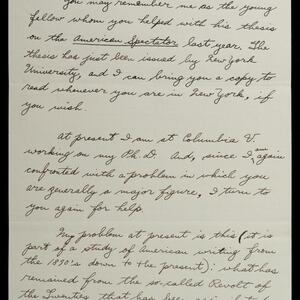 You may remember me as the young
fellow whom you helped with his thesis
on the American Spectator last year. The
thesis has just been issued by New York
University, and I can bring you a copy to
read whenever you are in New York, if
you wish.
At present I am at Columbia U.
working on my Ph.D. And, since I am again
confronted with a problem in which you
are generally a major figure, I turn to
you again for help.
My problem at present is this (it is
part of a study of American writing from
the 1890's down to the present): what has
remained from the so-called Revolt of
the Twenties that has been